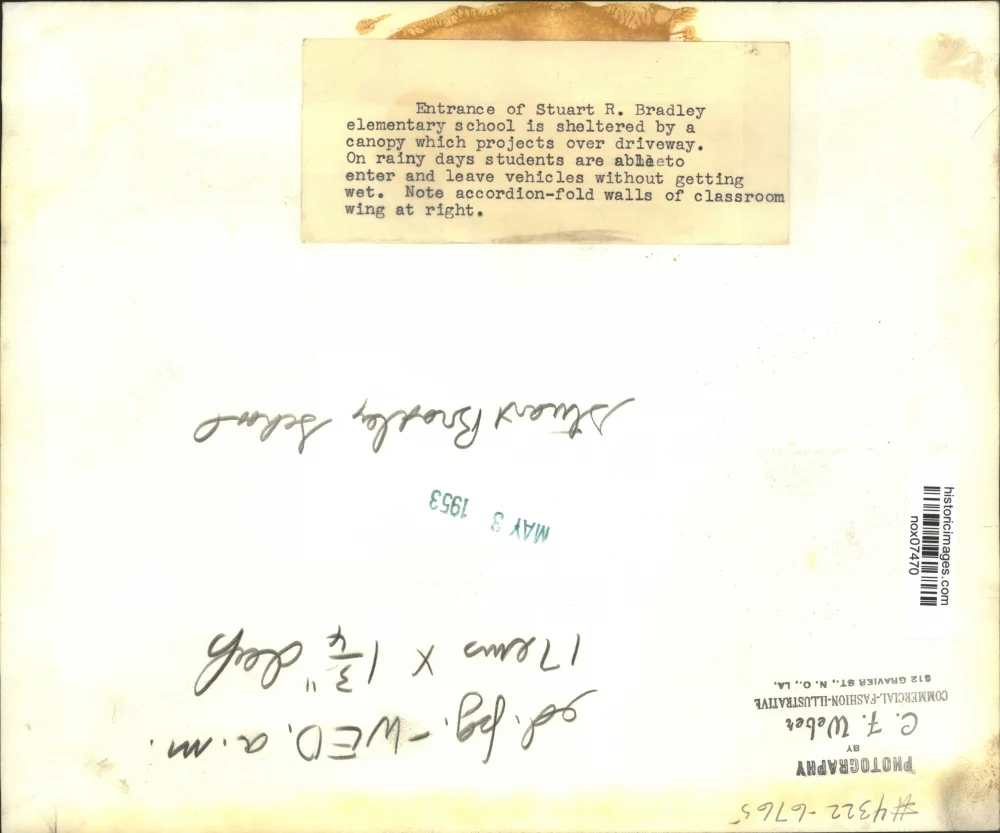 Entrance of Stuart R. Bradley
elementary school is sheltered by a
canopy which projects over driveway.
On rainy days students are able to
enter and leave vehicles without getting
wet. Note accordion-fold walls of classroom
wing at right.
Stuart Bradley School
MAY 3 1953
historicimages.com
nox07470
ed. pg. - WED. a.m.
17 ems x 1 3/4" deep
#4322-6765
PHOTOGRAPHY
BY
C. F. Weber
COMMERCIAL-FASHION-ILLUSTRATIVE
612 GRAVIER ST., N. O., LA.